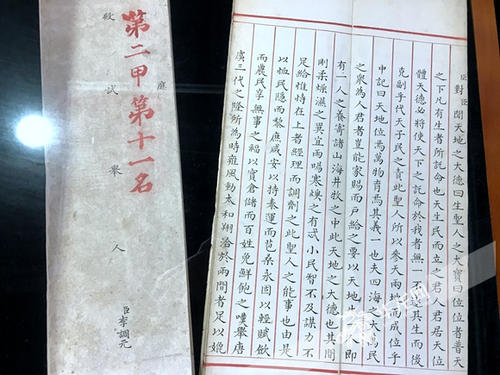 臣對臣聞天地之大德曰生聖人之大寶曰位位者普天
之下凡有生者所託命也天生民而立之君人君居天位
體天德必將使天下之託命於我者無一不遂其生而後
克副乎代天子民之責此聖人所以參天兩地而成位乎
中記曰天地位焉萬物育焉其義一也夫四海之大萬民
之衆為人君者豈能家賜而戶給之要以天地生人即
有一人之養寄諸山海井牧之中此天地之大德也其間
剛柔燥濕之異宜雨暘寒燠之有忒小民智不及謀力不
足給惟恃在上者經理而調劑之此聖人之能事也由是
以恤民隱而黎庶咸安以持泰運而苞桑永固以輕賦斂
而農民享無事之福以實倉儲而百姓免鮮飽之嘆舉唐
虞三代之隆所為時雍風動太和翔洽於兩間者足以媲
第二甲第十一名
殿試舉人
臣李調元